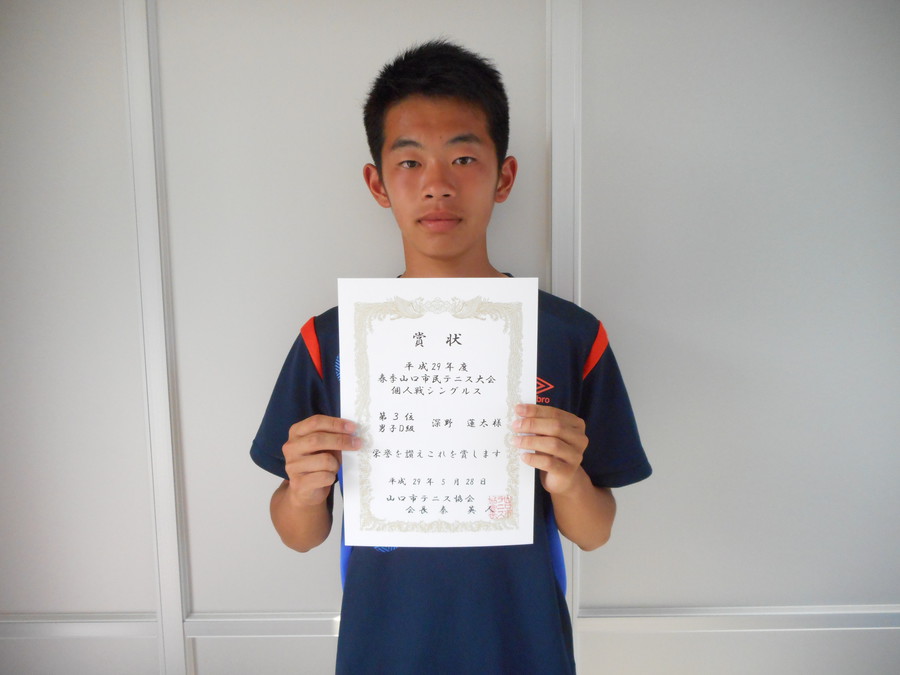 賞状
平成29年度
春季山口市民テニス大会
個人戦シングルス
第3位
男子D級 深野 蓮太様
栄誉を讃えこれを賞します
平成29年5月28日
山口市テニス協会
会長 秦 英人
bro